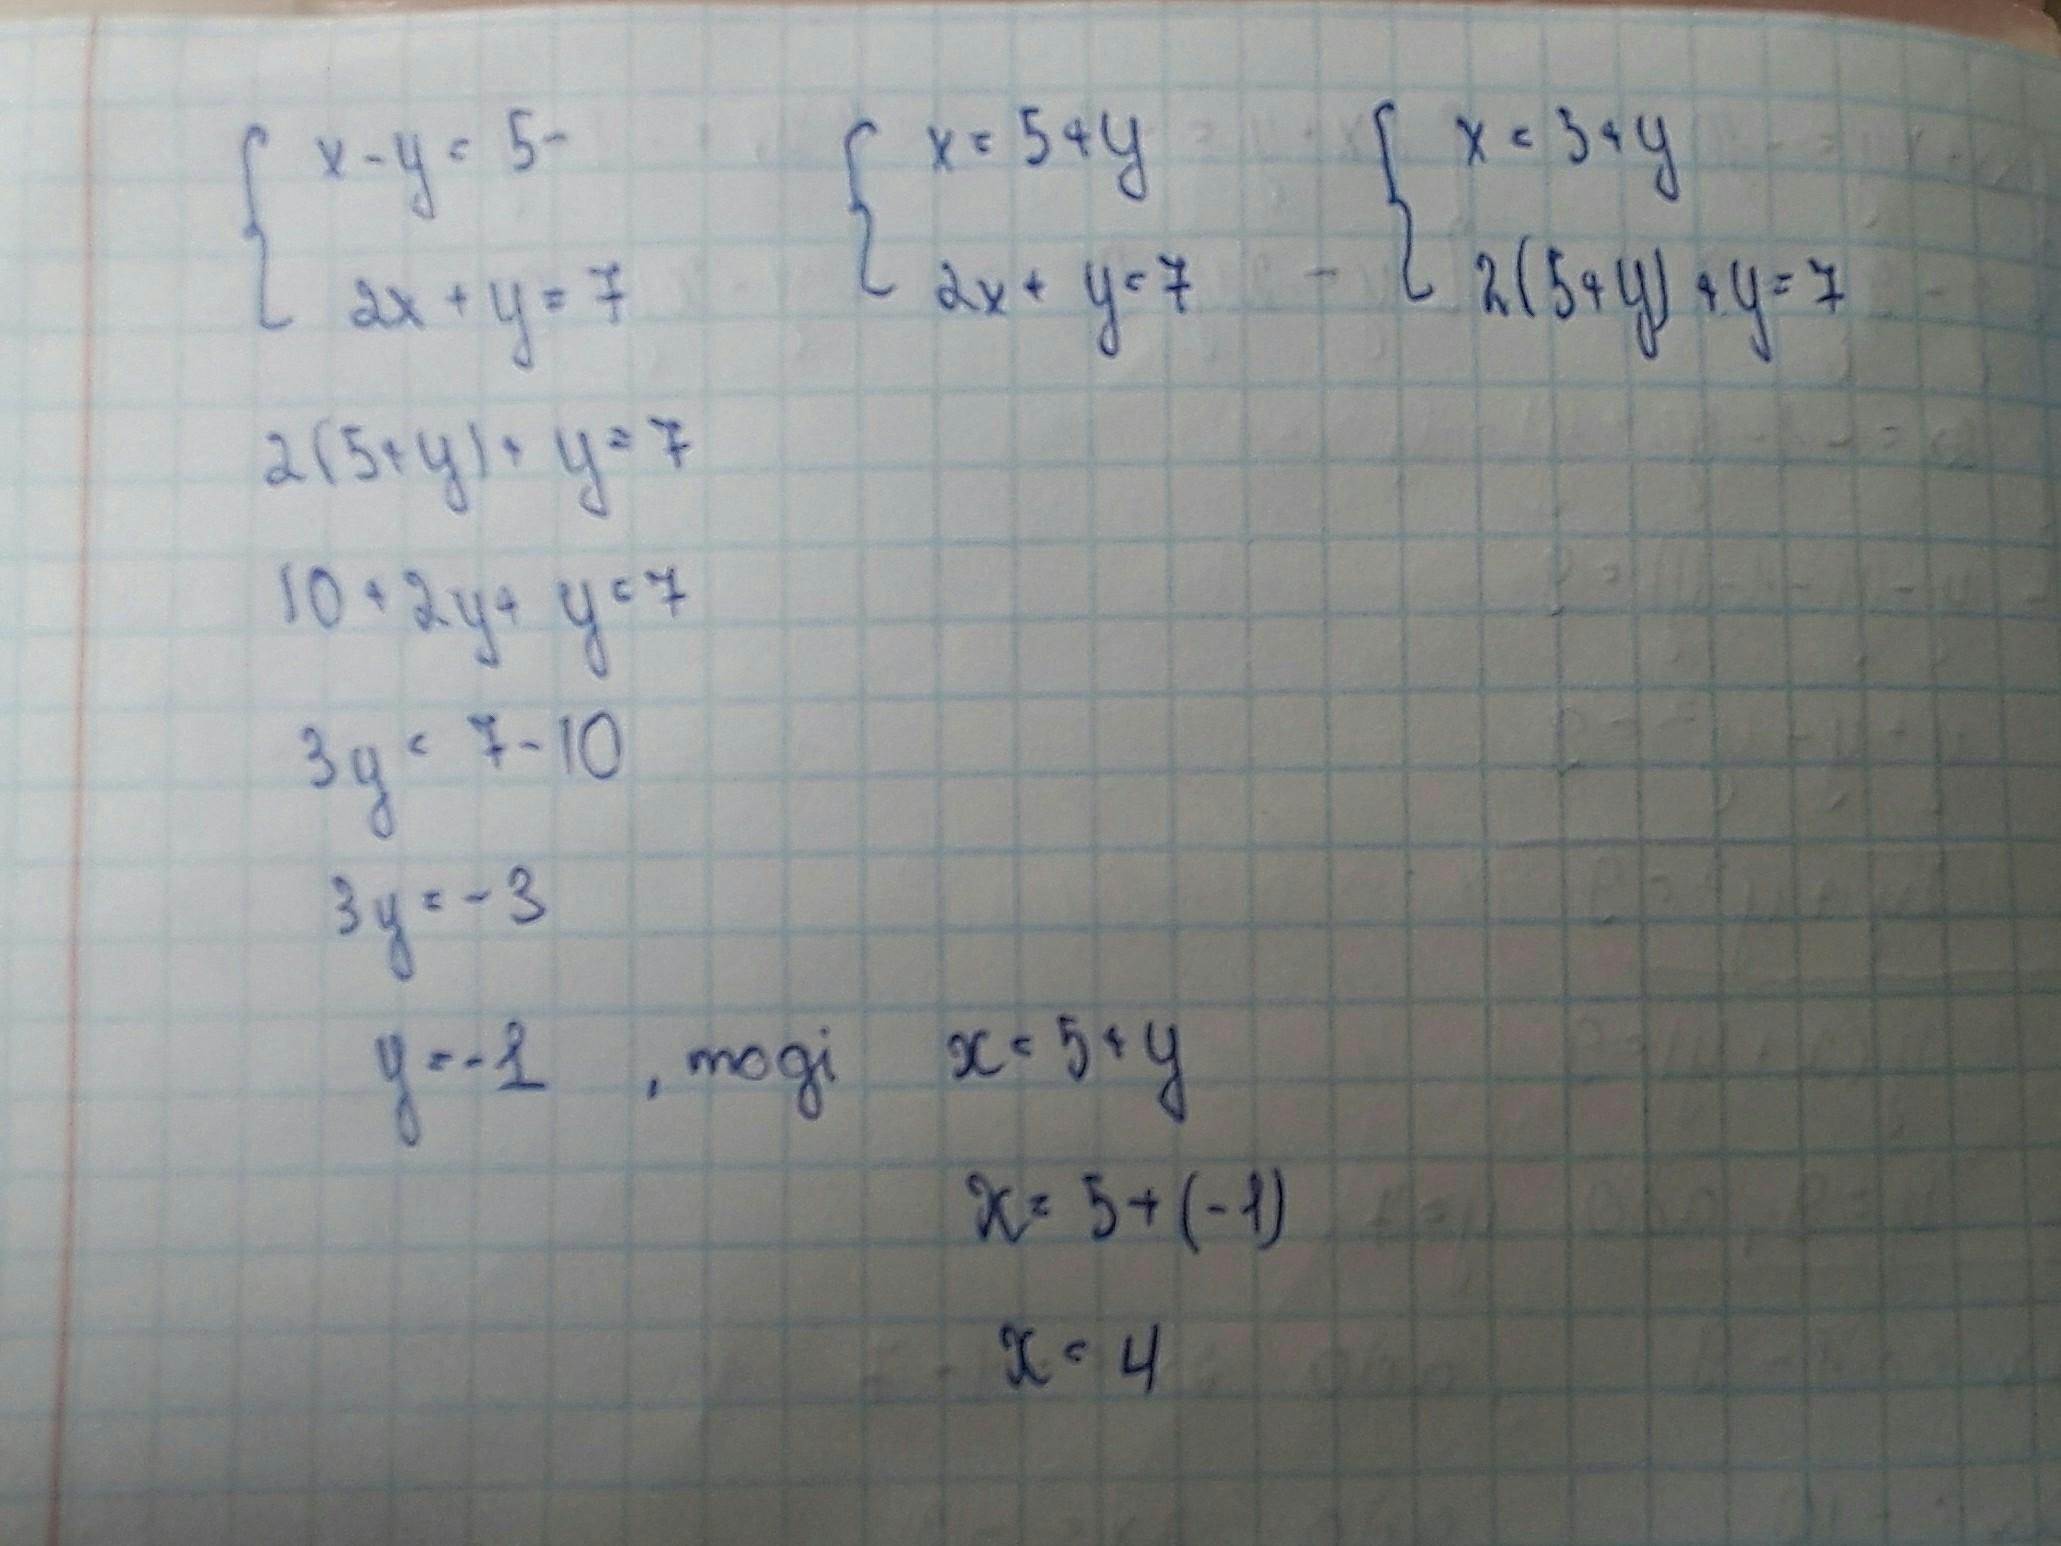 { x-y=5- { x=5+y { x=3+y
2x+y=7 2x+y=7 - 2(5+y)+y=7
2(5+y)+y=7
10+2y+y=7
3y=7-10
3y=-3
y=-1, тоді x=5+y
x=5+(-1)
x=4